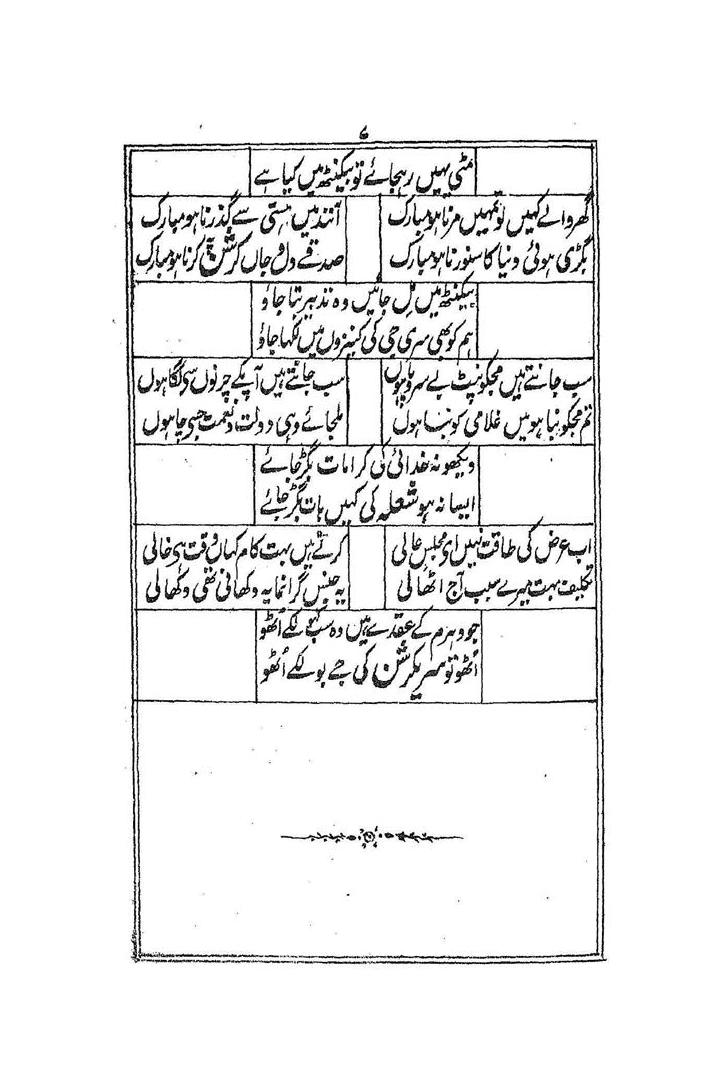 ۷
مٹی یہیں رہجائے تو بیکنٹھ میں کیا ہے
گھر والے کہیں تو تمہیں مرنا ہو مبارک
آنند میں ہستی سے گذرنا ہو مبارک
بگڑی ہوئی دنیا کا سنورنا ہو مبارک
صدقے دل و جاں کرشن پہ کرنا ہو مبارک
بیکنٹھ میں مل جائیں وہ تدبیر بتا جاؤ
ہم کو بھی سری جی کی کنیزوں میں لکھا جاؤ
سب جانتے ہیں مجکو نپٹ بے سروپا ہوں
سب جانتے ہیں آپکے چرنوں سی لگا ہوں
تم مجکو نبا ہو میں غلامی کو نبا ہوں
ملجائے وہی دولت و نعمت جسے چاہوں
دیکھو نہ خدائی کی کرامات بگڑ جائے
ایسا نہ ہو شعلہ کی کہیں بات بگڑ جائے
اب عرض کی طاقت نہیں ای مجلس عالی
کرنے ہیں بہت کام کہاں وقت ہی خالی
تکلیف بہت میرے سبب آج اٹھا لی
یہ جنس گرانمایہ دکھانی تھی دکھا لی
جو دہرم کے عقدے ہیں وہ سب کھولکے اُٹھو
اُٹھو تو سریکرشن کی جے بولکے اُٹھو